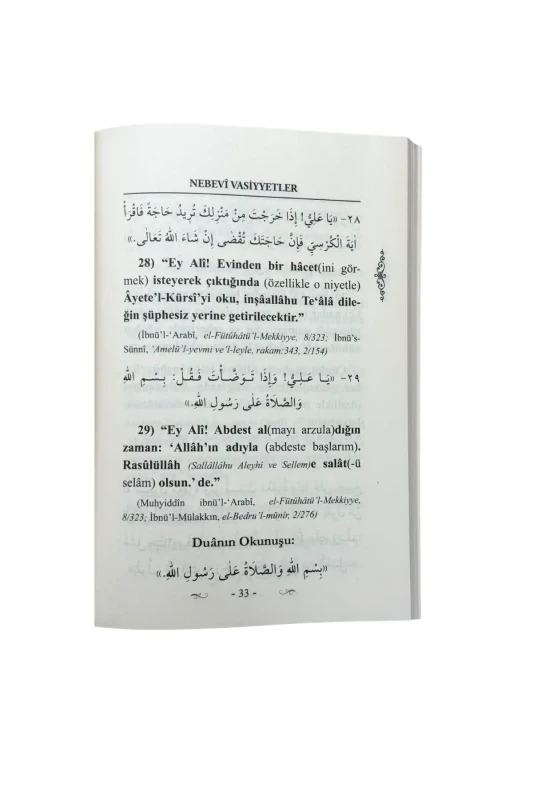 NEBEVİ VASİYYETLER
٢٨- «يَا عَلِيُّ! إِذَا خَرَجْتَ مِنْ مَنْزِلِكَ تُرِيدُ حَاجَةً فَاقْرَأْ
اٰيَةَ الْكُرْسِيِّ فَإِنَّ حَاجَتَكَ تُقْضٰى إِنْ شَاءَ اللهُ تَعَالٰى.»
28) “Ey Alî! Evinden bir hâcet(ini gör-
mek) isteyerek çıktığında (özellikle o niyetle)
Âyete’l-Kürsî’yi oku, inşâallâhu Te‘âlâ dile-
ğin şüphesiz yerine getirilecektir.”
(İbnü’l-‘Arabî, el-Fütûhâtü’l-Mekkiyye, 8/323; İbnü’s-
Sünnî, ‘Amelü’l-yevmi ve’l-leyle, rakam:343, 2/154)
٢٩- «يَا عَلِيُّ! وَإِذَا تَوَضَّأْتَ فَقُلْ: بِسْمِ اللهِ
وَالصَّلَاةُ عَلٰى رَسُولِ اللهِ.»
29) “Ey Alî! Abdest al(mayı arzula)dığın
zaman: ‘Allâh’ın adıyla (abdeste başlarım).
Rasûlüllâh (Sallâllâhu Aleyhi ve Sellem)e salât(-ü
selâm) olsun.’ de.”
(Muhyiddîn ibnü’l-‘Arabî, el-Fütûhâtü’l-Mekkiyye,
8/323; İbnü’l-Mülakkın, el-Bedru’l-münîr, 2/276)
Duânın Okunuşu:
«بِسْمِ اللهِ وَالصَّلَاةُ عَلٰى رَسُولِ اللهِ.»
- 33 -